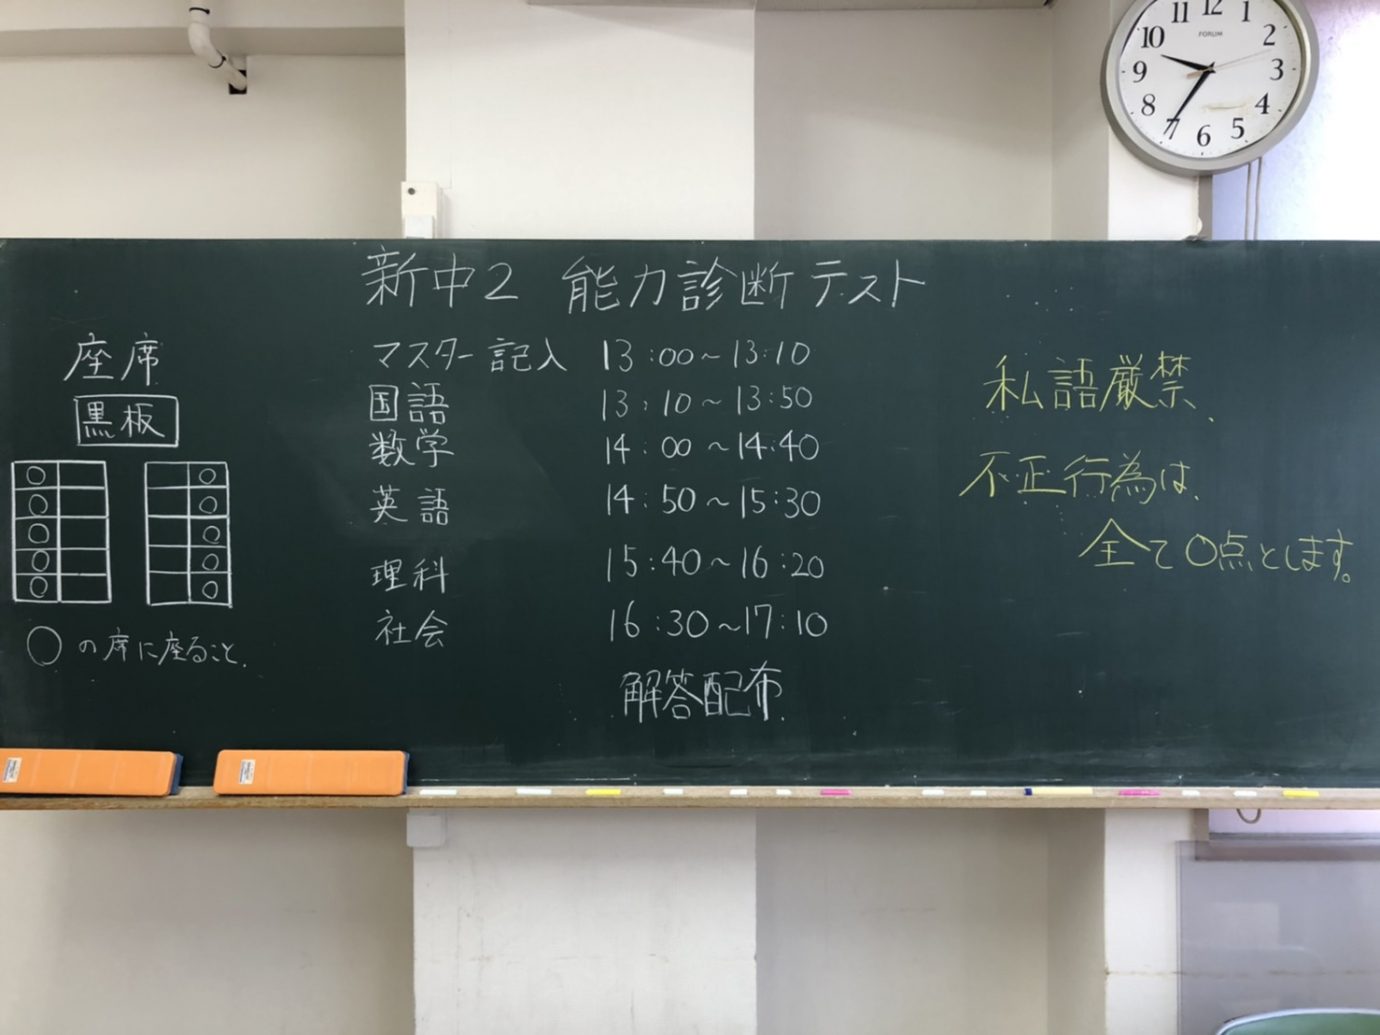 11 12 1
10 2
9 3
8 4
7 6 5
FORUM
新中2 能力診断テスト
座席
黒板
○の席に座ること.
マスター記入 13:00~13:10
国語 13:10~13:50
数学 14:00~14:40
英語 14:50~15:30
理科 15:40~16:20
社会 16:30~17:10
解答配布
私語厳禁.
不正行為は、
全て0点とします。